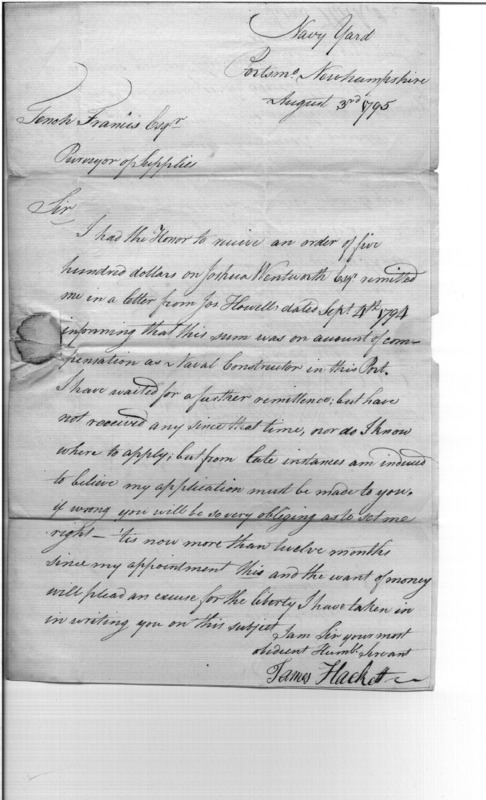 Navy Yard
Portsmo. Newhampshire
August 3rd 1795
Tench Francis Esqr
Purveyor of Supplies
Sir
I had the Honor to receive an order of five
hundred dollars on Joshua Wentworth Esqr remitted
me in a letter from Jos Howells dated Sept 4th 1794
informing that this sum was on account of com-
pensation as Naval Constructor in this Port.
I have waited for a further remittence; but have
not received any since that time, nor do I know
where to apply; but from late instances am induced
to believe my application must be made to you,
if wrong you will be so very obliging as to set me
right — 'tis now more than twelve months
since my appointment this and the want of money
will plead an excuse for the liberty I have taken in
in writing you on this subject
I am Sir your most
obedient Humbl. Servant
James Hackett